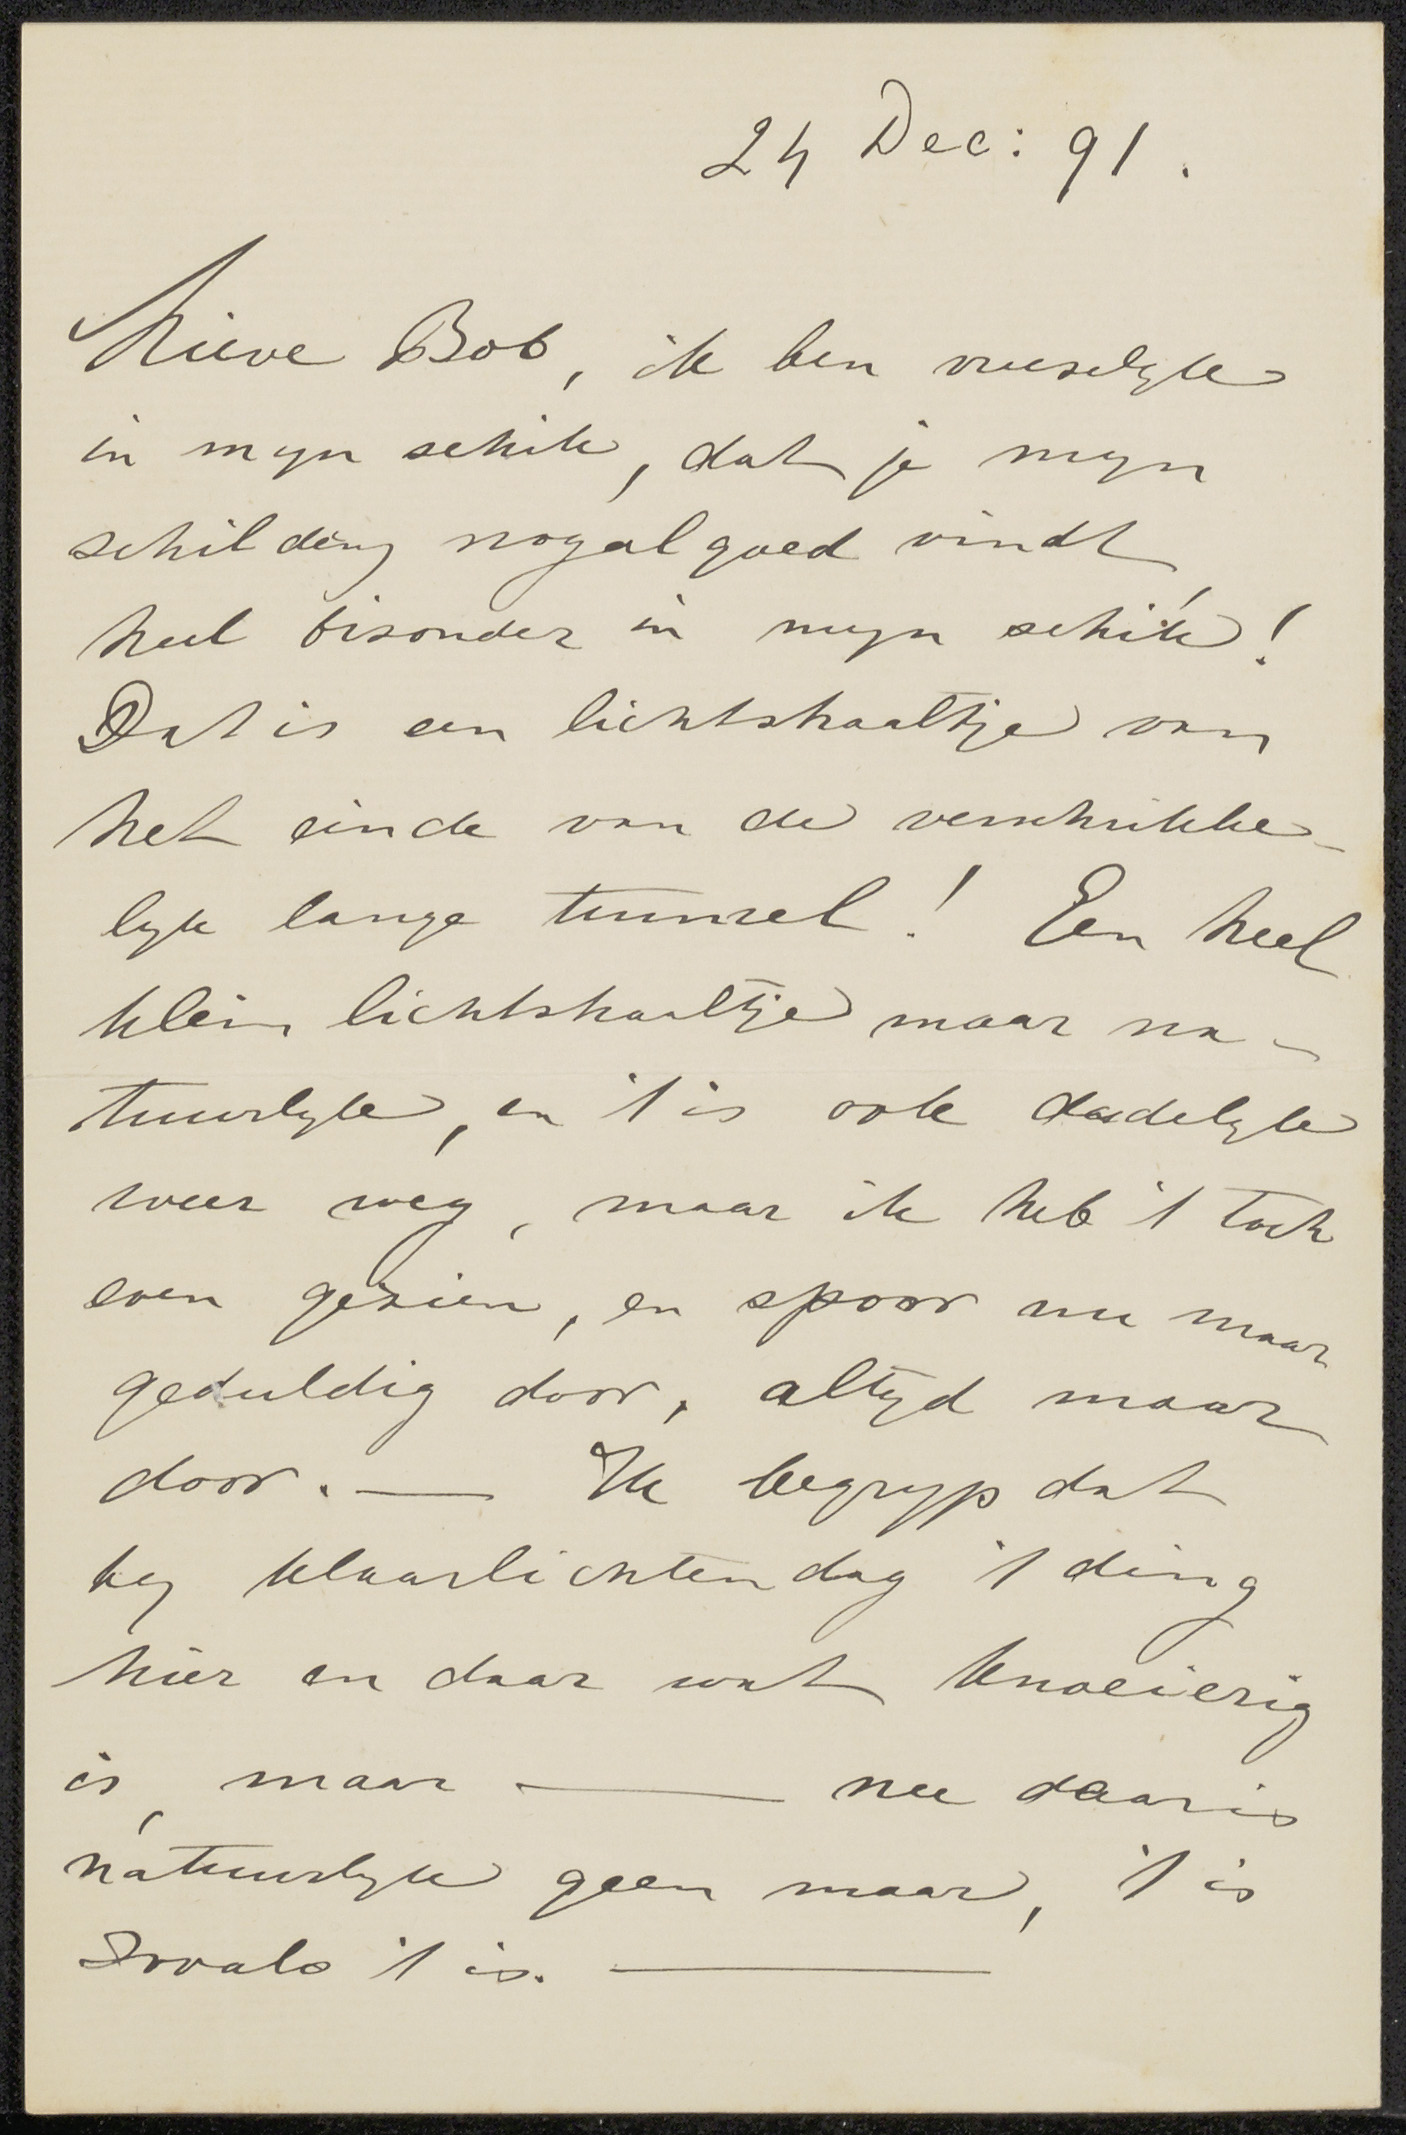 24 Dec: 91.
Lieve Bob, ik ben vreeselyk
in myn schik, dat je myn
schildery nogal goed vindt,
heel bisonder in myn schik!
Dat is een lichtstraaltje van
het einde van de verschrikke-
lyk lange tunnel! Een heel
klein lichtstraaltje maar na-
tuurlyk, en 't is ook dadelyk
weer weg, maar ik heb 't toch
even gezien, en spoor nu maar
geduldig door, altyd maar
door. — Ik begryp dat
by klaarlichten dag 't ding
hier en daar wat knoeierig
is, maar — nee daar is
natuurlyk geen maar, 't is
zooals 't is. —